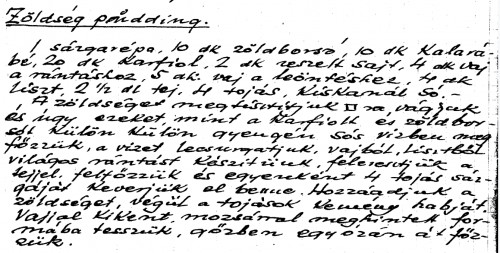 Zöldség púdding.
1 sárgarépa, 10 dk zöldborsó, 10 dk Kalará-
bé, 20 dk Karfiol, 2 dk reszelt sajt, 4 dk vaj
a rántáshoz, 5 dk. vaj a leöntéshez, 4 dk
liszt, 2 ½ dl tej, 4 tojás, Kiskanál só.-
A zöldséget megtisztítjuk □ra, vágjuk
és úgy ezeket, mint a Karfiolt és zöldbor-
sót Külön Külön gyengén sós vizben meg
főzzük, a vizet leszurjuk, vajból, lisztből
világos rántást Készítünk, feleresztjük a
tejjel, felfőzzük és egyenként 4 tojás sár-
gáját Keverjük el benne. Hozzáadjuk a
zöldséget, végül a tojások Kemény habját.
Vajjal Kikent, mozsárral meghintett for-
mába tesszük, gőzben egy órán át főz-
zük.